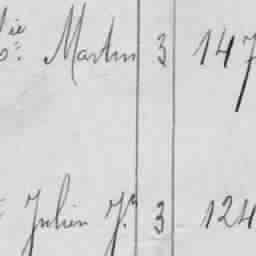 Martin 3 147
Julien Jne 3 124